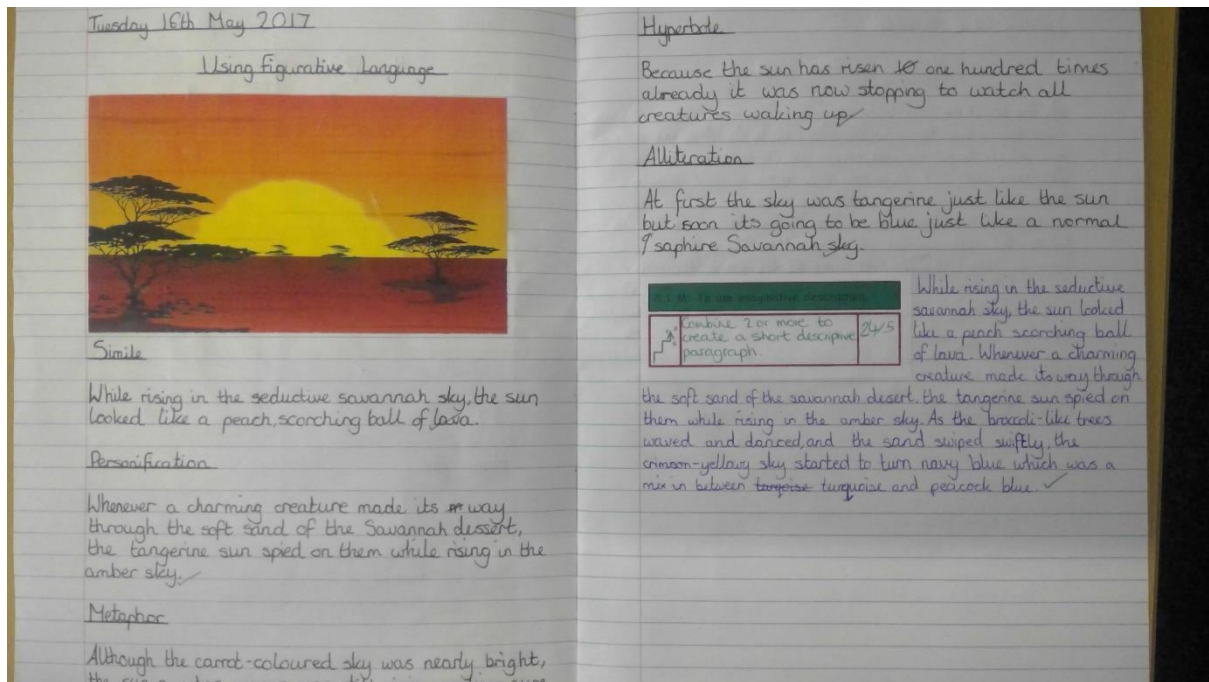 Tuesday 16th May 2017
Using Figurative Language
Simile
While rising in the seductive savannah sky, the sun
looked like a peach, scorching ball of lava.
Personification
Whenever a charming creature made its way
through the soft sand of the Savannah dessert,
the tangerine sun spied on them while rising in the
amber sky.
Metaphor
Although the carrot-coloured sky was nearly bright,
the sun
Hyperbole
Because the sun has risen one hundred times
already it was now stopping to watch all
creatures waking up
Alliteration
At first the sky was tangerine just like the sun
but soon its going to be blue just like a normal
saphire Savannah sky.
To use imaginative description
Combine 2 or more to
create a short descriptive
paragraph.
24/5
While rising in the seductive
savannah sky, the sun looked
like a peach scorching ball
of lava. Whenever a charming
creature made its way through
the soft sand of the savannah desert, the tangerine sun spied on
them while rising in the amber sky. As the broccoli-like trees
waved and danced, and the sand swiped swiftly, the
crimson-yellowy sky started to turn navy blue which was a
mix in between turquoise and peacock blue.